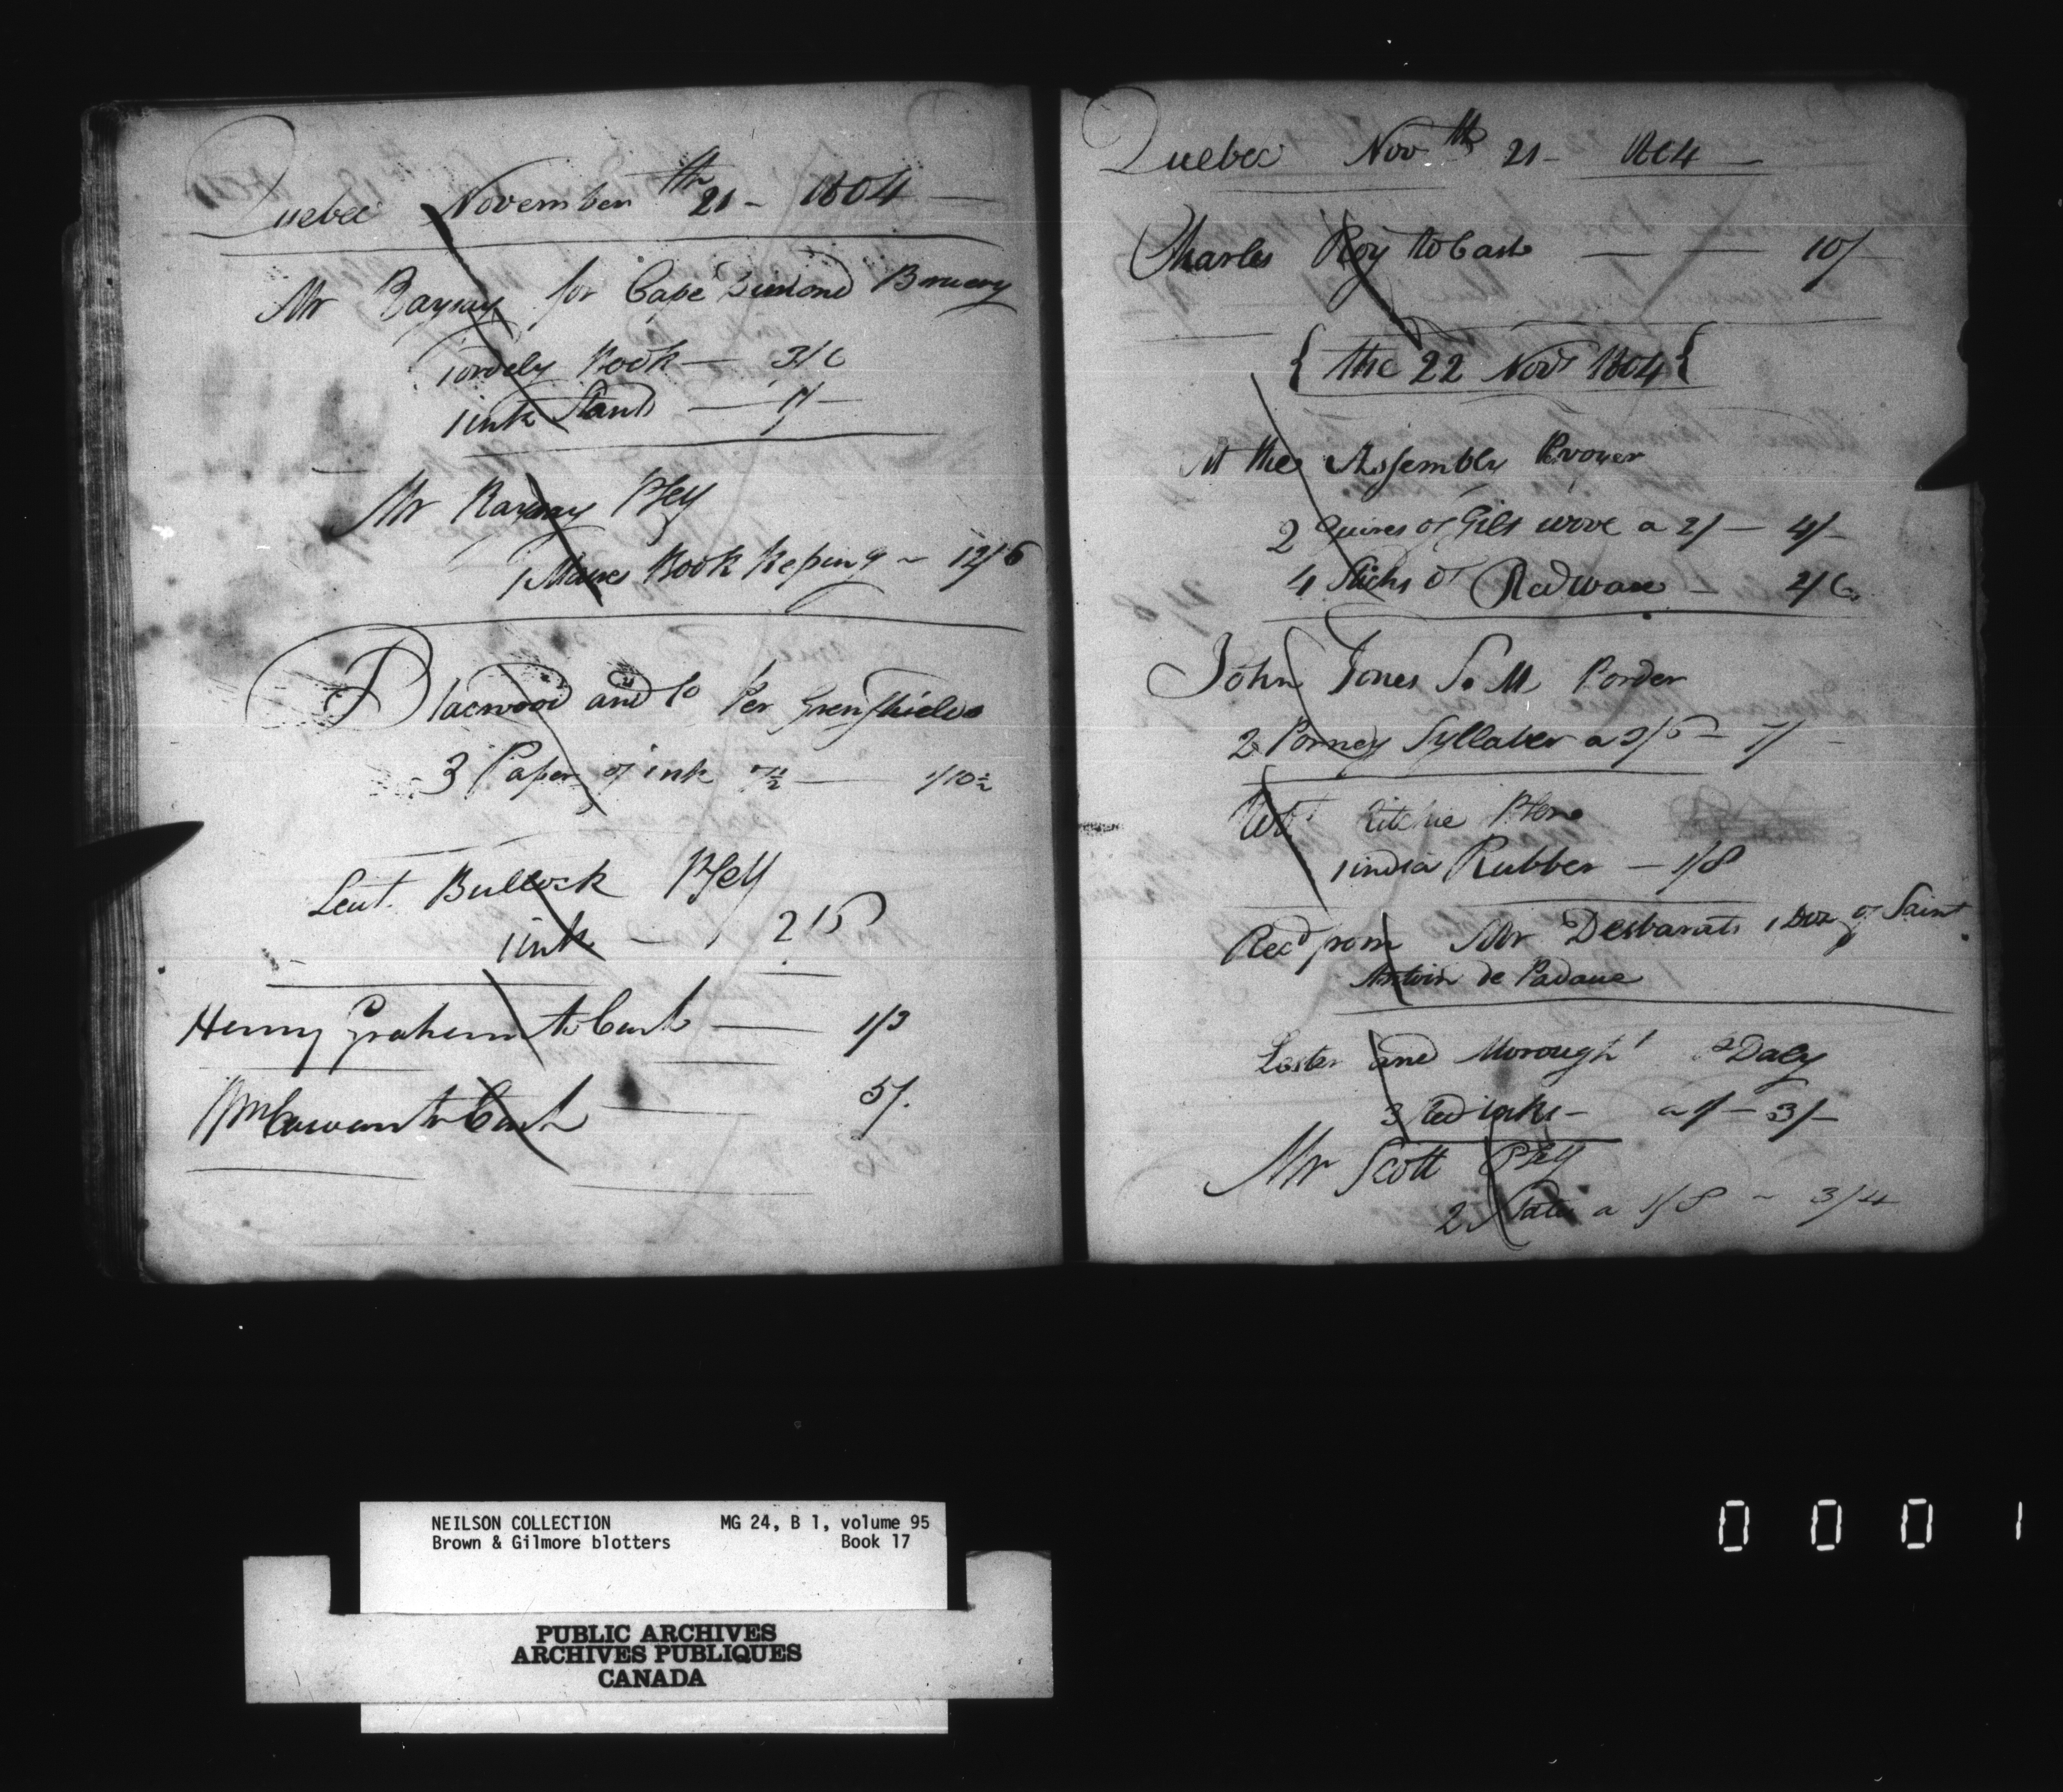 Quebec November th 21 - 1804
Mr Raynay for Cape Diamond Bruery
1 ordely Book - 3/6
1 ink Stand - 1/-
Mr Raynay Pself
1 Mares Book Keping - 12/6
Blacwood and Co Per Grenshields
3 Paper of ink 7½ - 1/10½
Leut. Bullock Pself
1 ink - 2/6
Henry Graham to Cash - 1/3
Wm Cowan to Cash 5/.
Quebec Nov th 21 - 1804
Charles Roy to Cash - 10/
{ the 22 Nov 1804 }
At the Assembly
2 Quires of Gilt wove a 2/ - 4/-
4 Sticks of Red waxe - 2/6
John Jones S. M. Porder
2 Porney Syllaber a 3/6 - 7/-
Ritchie
1 india Rubber - 1/8
Recd from Mr Desbarats 1 Doz of Saint
Antoin de Padaue
Lester and Morough P Daly
3 Red inks - a 1/ - 3/-
Mr Scott Pself
2 Slates a 1/8 - 3/4
NEILSON COLLECTION MG 24, B 1, volume 95
Brown & Gilmore blotters Book 17
PUBLIC ARCHIVES
ARCHIVES PUBLIQUES
CANADA
0 0 0 1